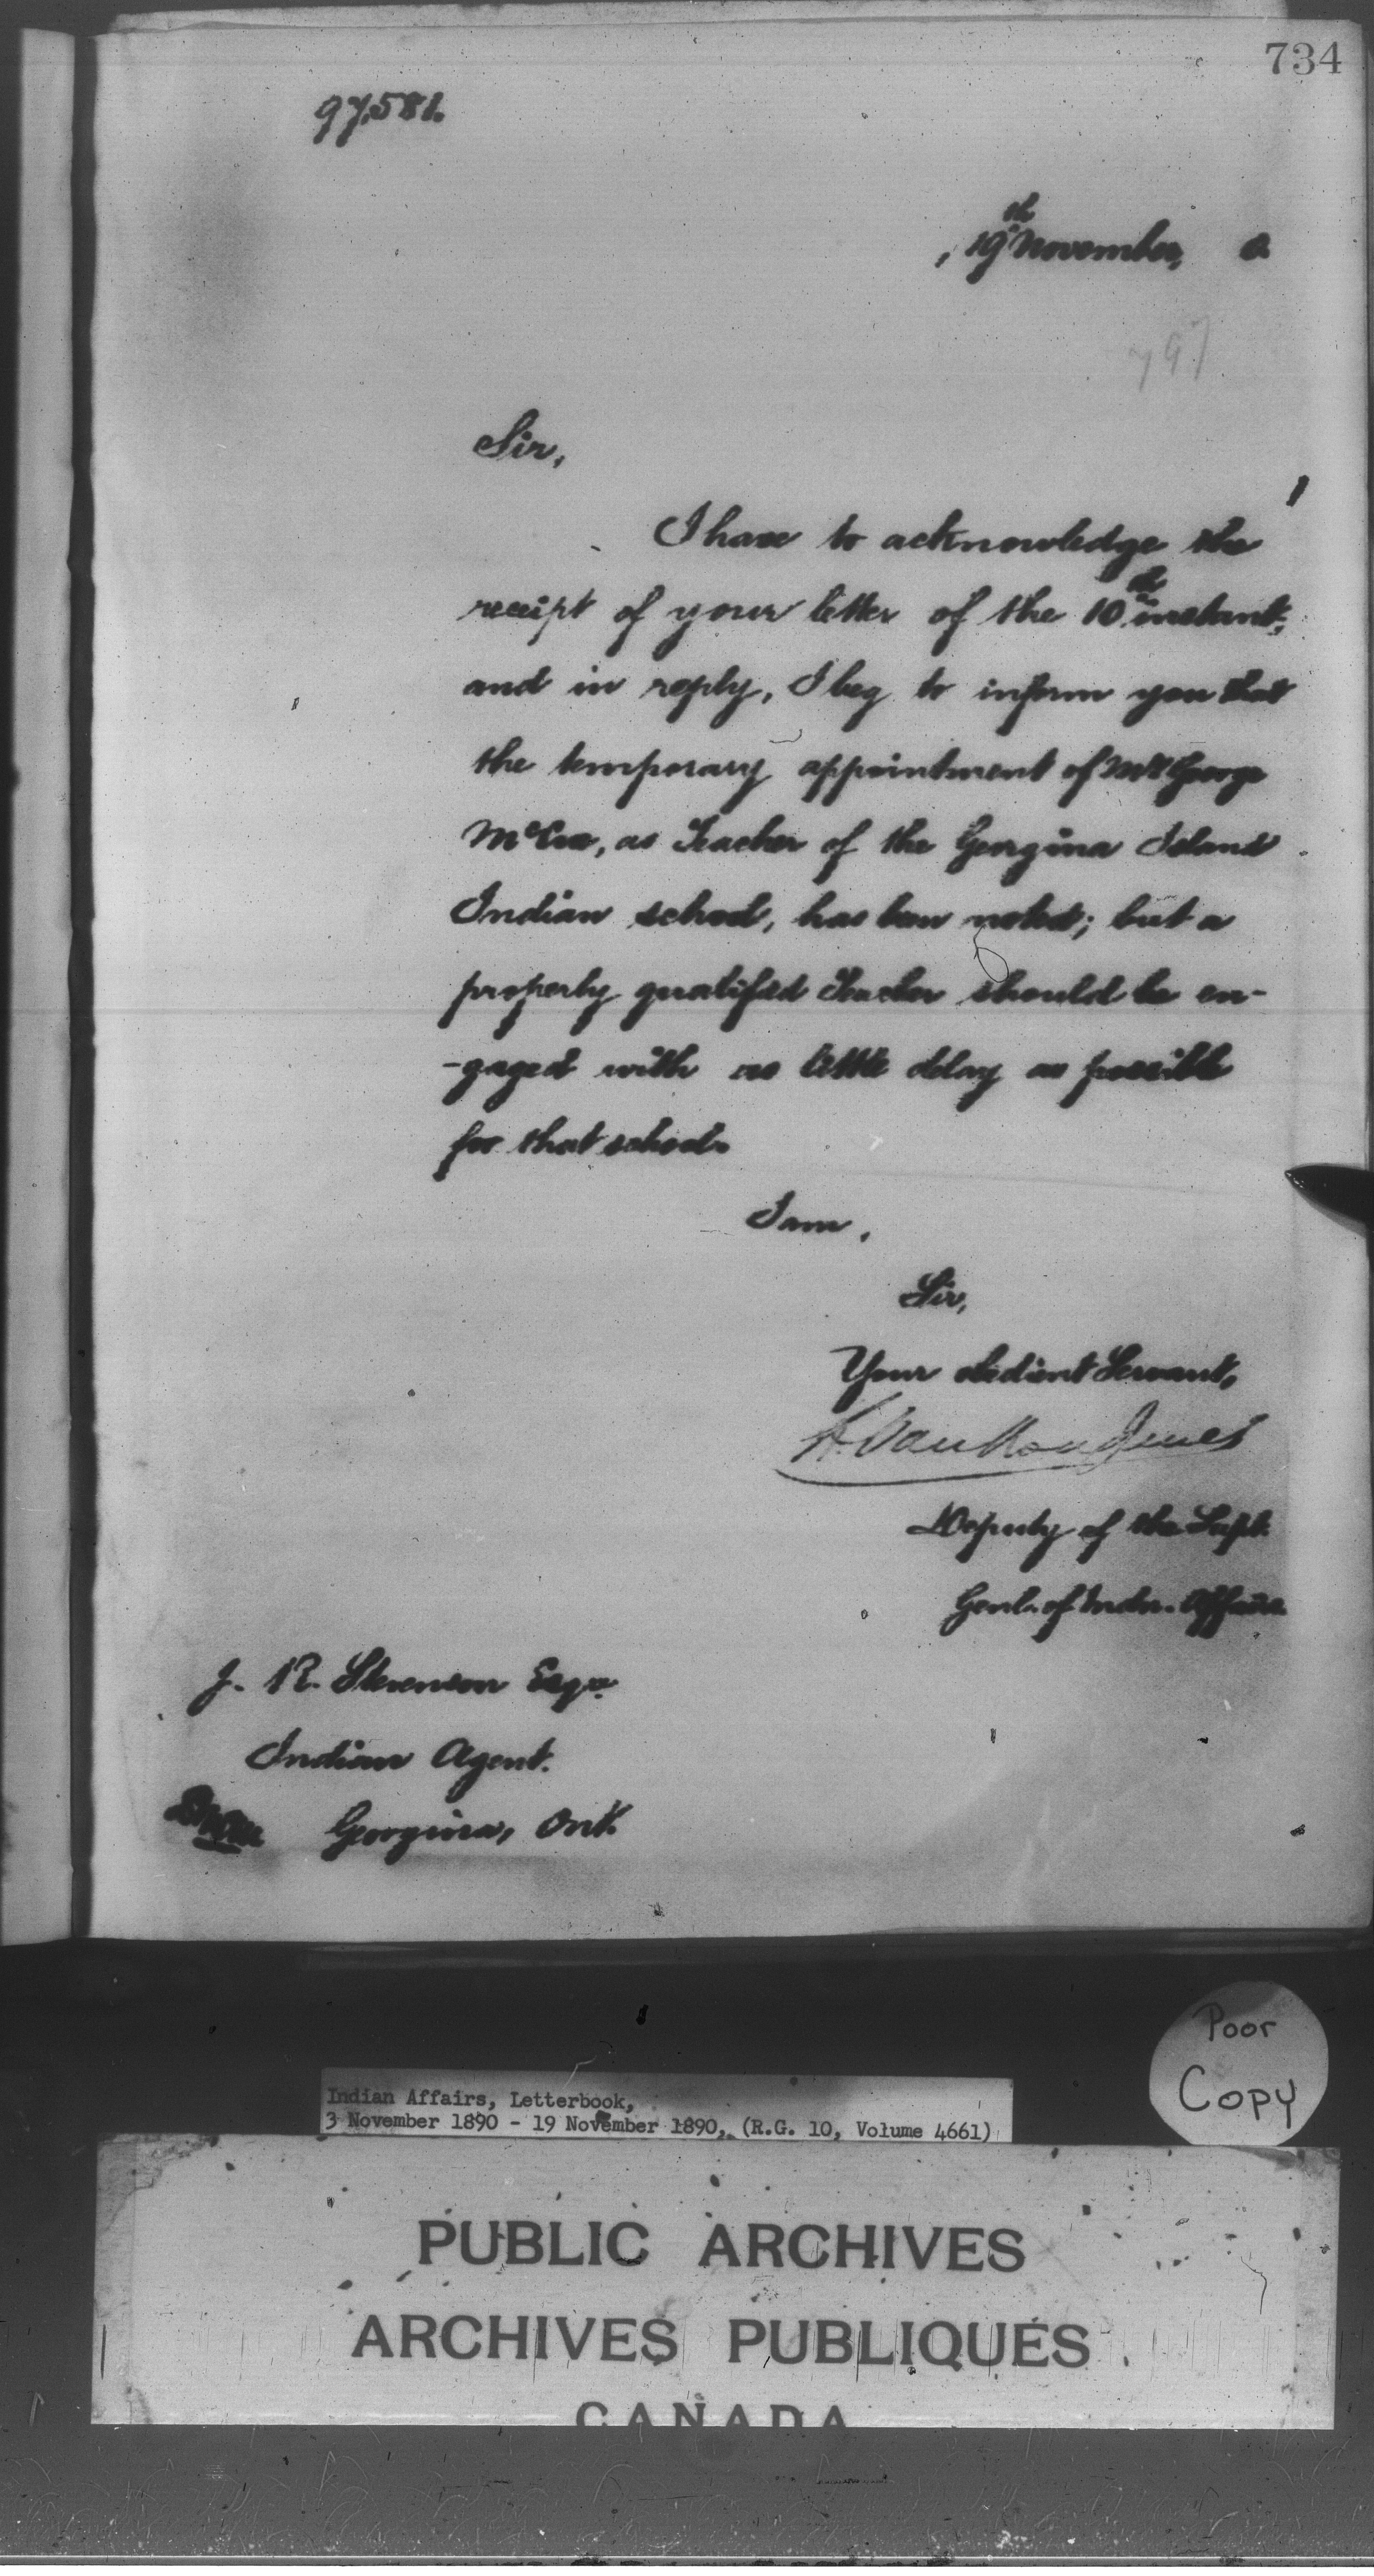 734
97,581.
, 19th November, 0
797
Sir,
I have to acknowledge the
receipt of your letter of the 10th instant,
and in reply, I beg to inform you that
the temporary appointment of Mr George
as Teacher of the Georgina Island
Indian school, has been noted; but a
properly qualified Teacher should be en-
-gaged with as little delay as possible
for that school.
I am,
Sir,
Your obedient Servant,
Deputy of the Supt.
Genl. of Indn. Affairs
J. R. Stevenson Esqr.
Indian Agent.
Georgina, Ont.
Poor
Copy
Indian Affairs, Letterbook,
3 November 1890 - 19 November 1890, (R.G. 10, Volume 4661)
PUBLIC ARCHIVES
ARCHIVES PUBLIQUES
CANADA